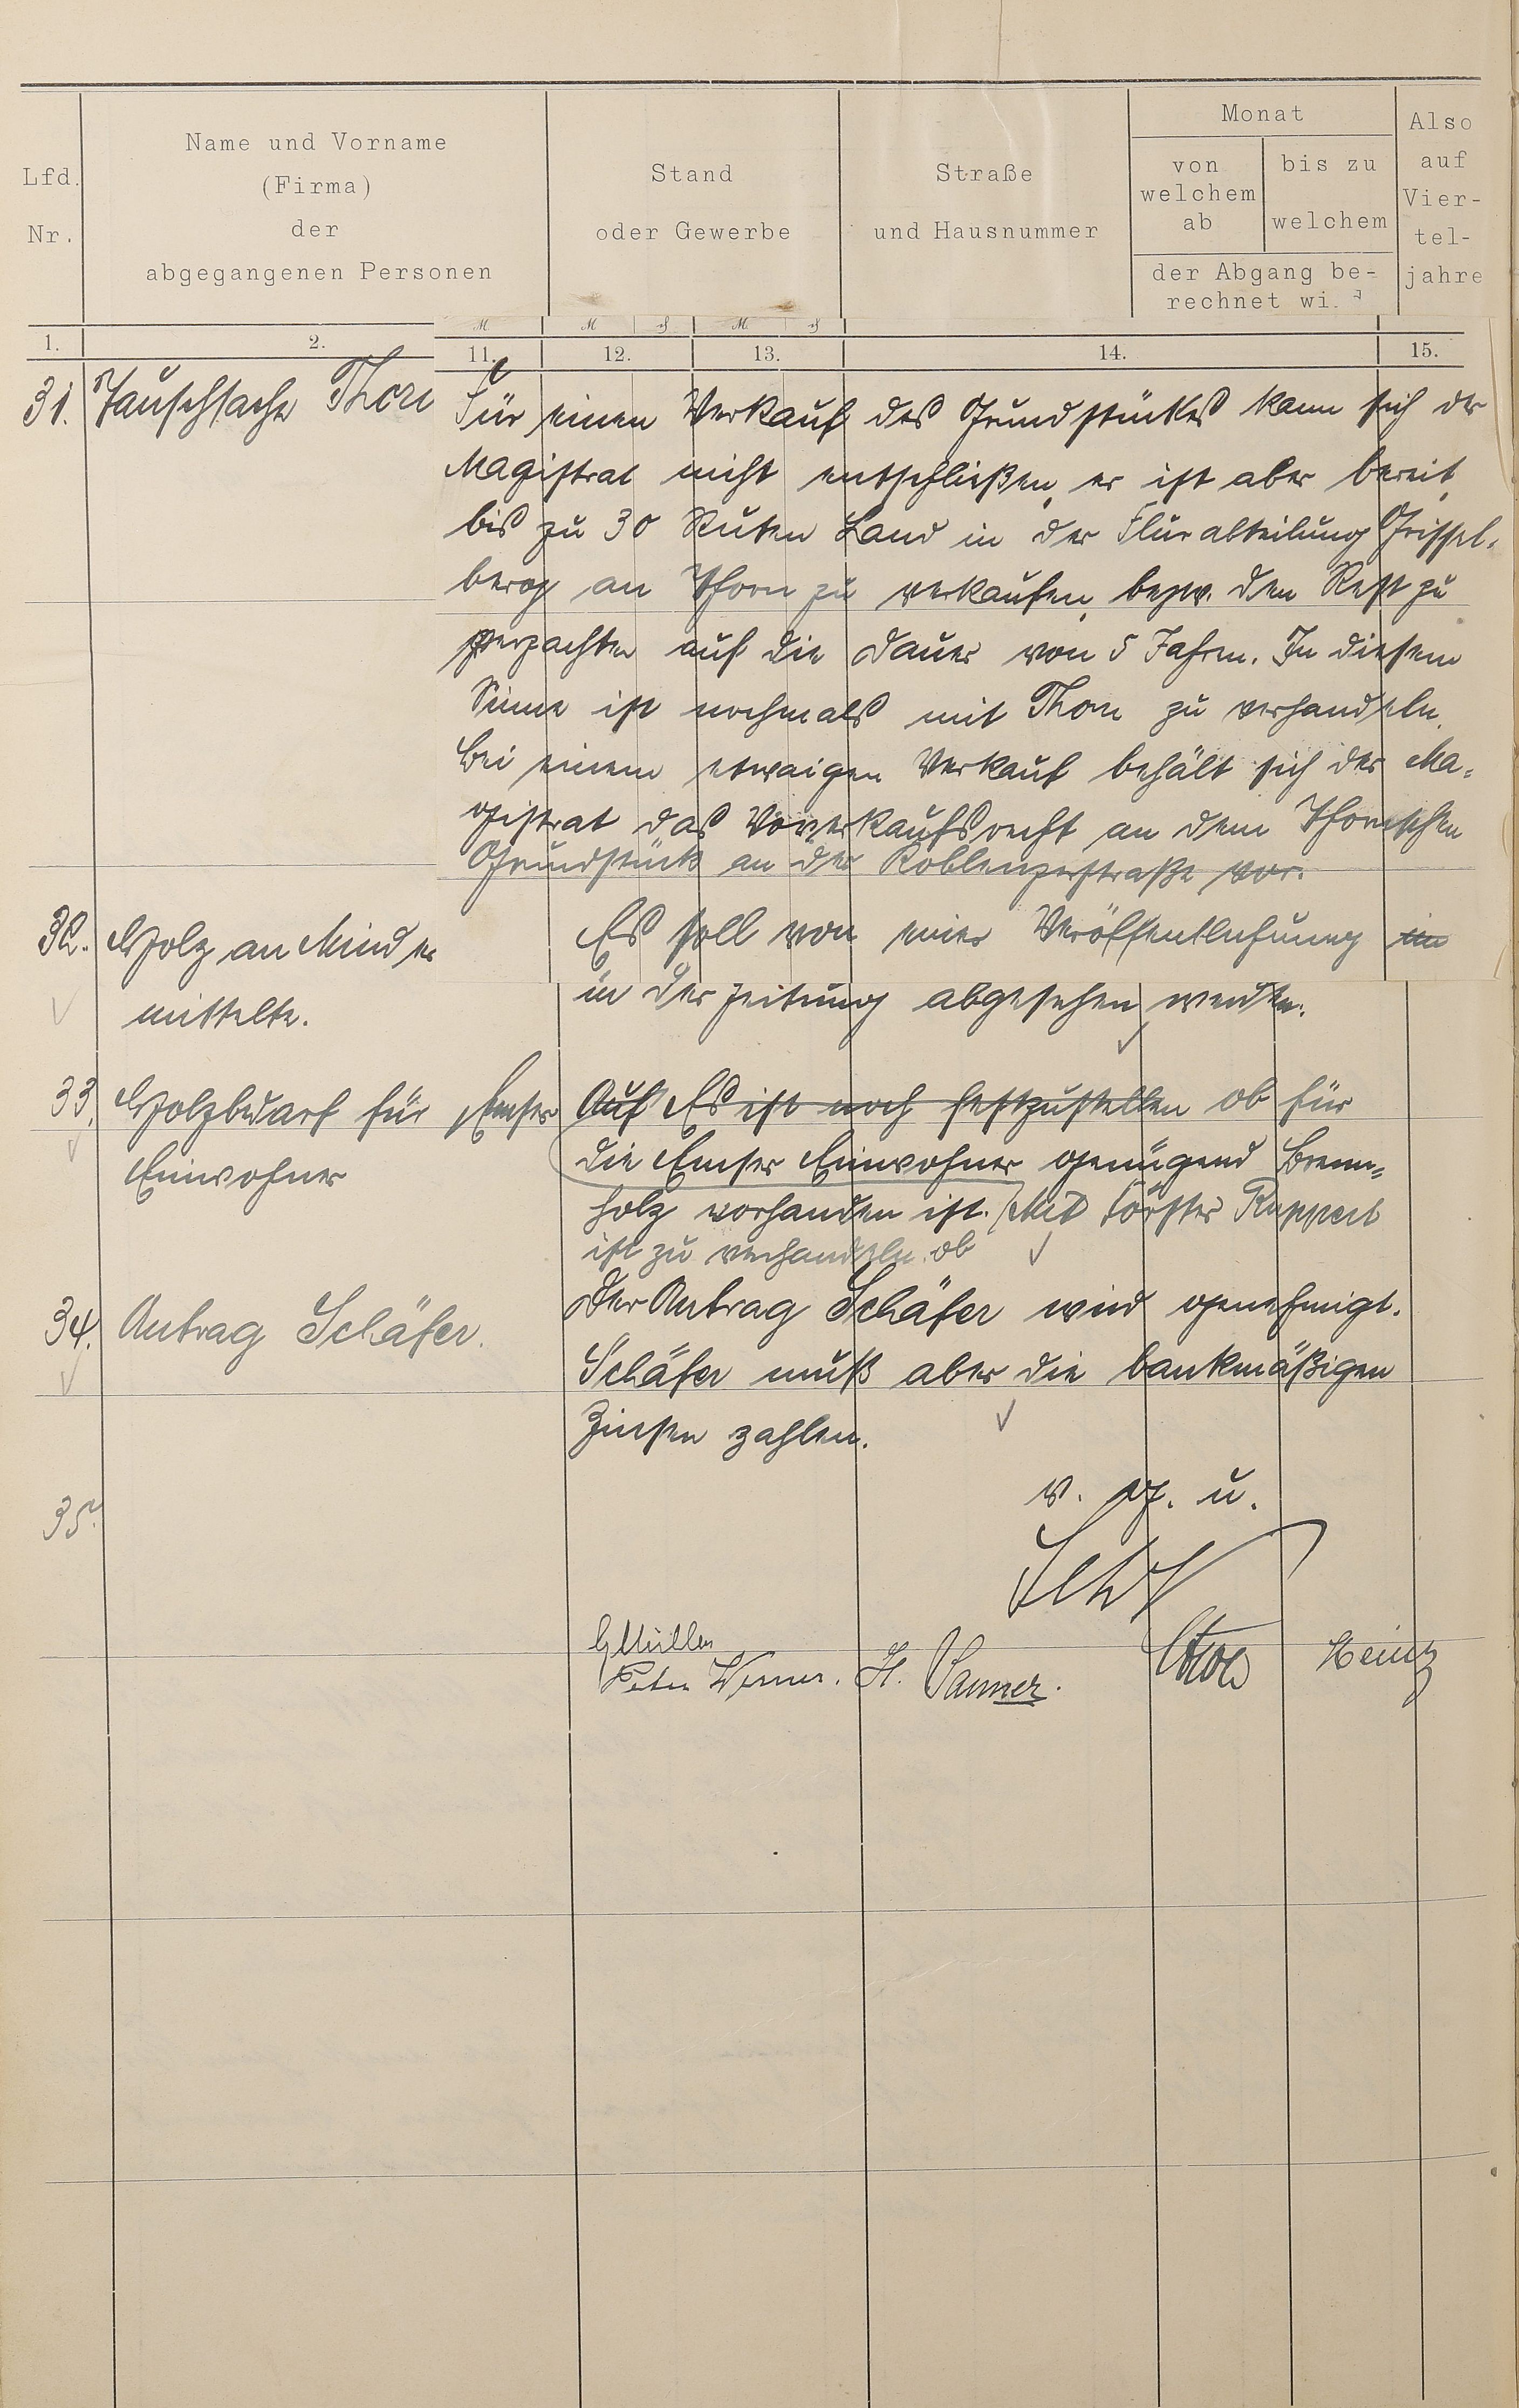 Lfd. Nr.
Name und Vorname
(Firma)
der
abgegangenen Personen
Stand
oder Gewerbe
Straße
und Hausnummer
Monat
von welchem ab
bis zu welchem
der Abgang be-
rechnet wi. d
Also
auf
Vier-
tel-
jahre
M M ₰ M ₰
1. 2. 11. 12. 13. 14. 15.
31. Tauschsache Thorn
Für einen Verkauf des Grundstückes kann sich der
Magistrat nicht entschließen, er ist aber bereit,
bis zu 30 Ruten Land in der Flurabteilung Grissel-
berg an Thorn zu verkaufen, bezw. den Rest zu
verpachten auf die Dauer von 5 Jahren. In diesem
Sinne ist nochmals mit Thorn zu verhandeln.
Bei einem etwaigen Verkauf behält sich der Ma-
gistrat das Vorverkaufsrecht an dem Thornschen
Grundstück an der Koblenzerstraße vor.
32. Holz an Minder
mittelte.
Es soll von einer Veröffentlichung im
in der Zeitung abgesehen werden.
33. Holzbedarf für Emser
Einwohner
Auf Es ist noch festzustellen ob für
die Emser Einwohner genügend Brenn-
holz vorhanden ist. Mit Förster Ruppert
ist zu verhandeln. ob
34. Antrag Schäfer.
Der Antrag Schäfer wird genehmigt.
Schäfer muß aber die bankmäßigen
Zinsen zahlen.
35.
v. g. u.
G Müller
Peter Werner. H. Sanner. Heinz